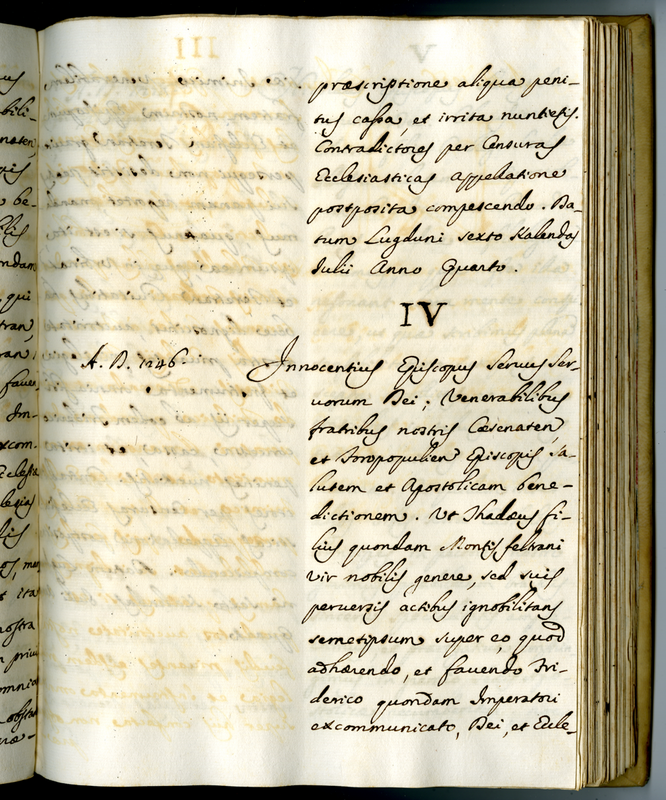 præscriptione aliqua peni-
tus cassa, et irrita nuntietis.
Contradictores per Censuras
Ecclesiasticas appellatione
postposita compescendo. Da-
tum Lugduni sexto Kalendas
Julii Anno Quarto.
IV
A. D. 1246
Innocentius Episcopus Servus Ser-
vorum Dei; Venerabilibus
fratribus nostris Cæsenaten,
et Foropopulien Episcopis Sa-
lutem et Apostolicam bene-
dictionem. Ut Thadæus fi-
lius quondam Montisfeltrani
vir nobilis genere, sed suis
perversis actibus ignobilitans
semetipsum super eo, quod
adhærendo, et favendo Fri-
derico quondam Imperatori
excommunicato, Dei, et Eccle-